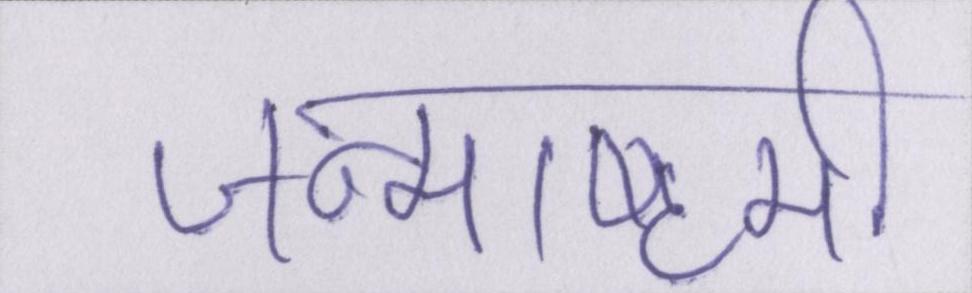 जन्माष्टमी